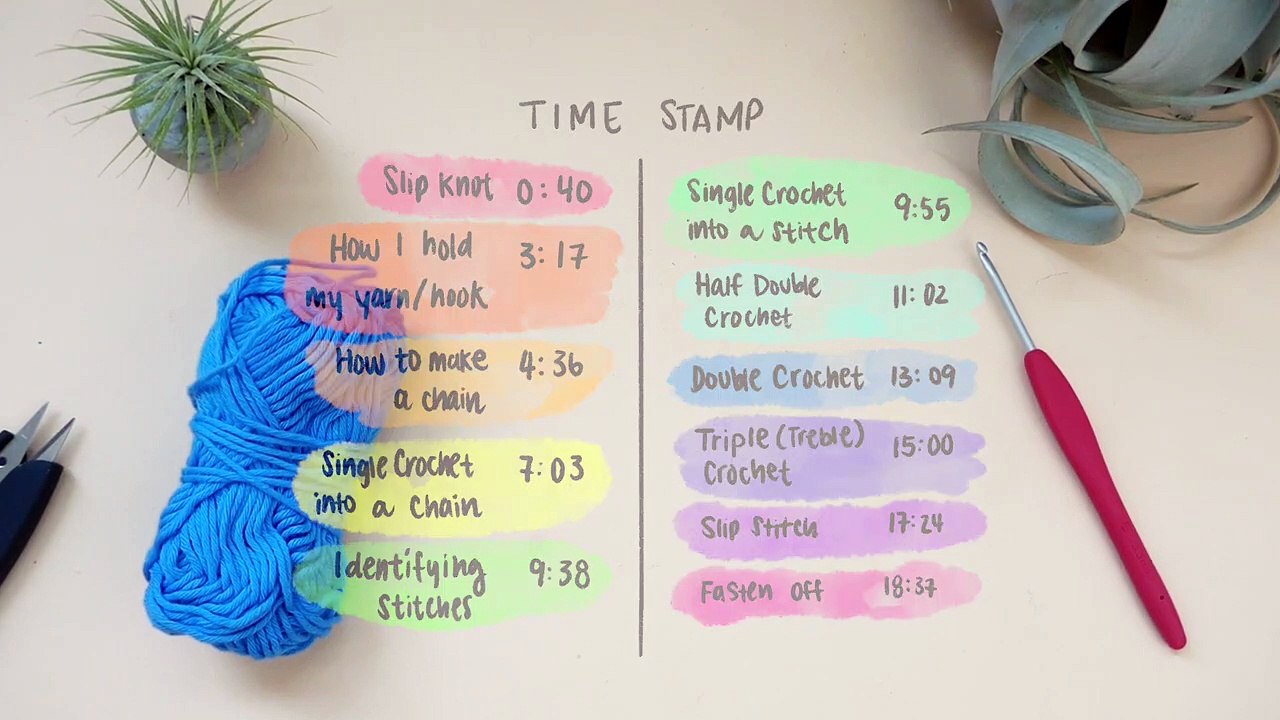 TIME STAMP
Slip Knot 0:40
How I hold 3:17
my yarn/hook
How to make 4:36
a chain
Single Crochet 7:03
into a chain
Identifying 9:38
Stitches
Single Crochet 9:55
into a stitch
Half Double 11:02
Crochet
Double Crochet 13:09
Triple (Treble) 15:00
Crochet
Slip Stitch 17:24
Fasten Off 18:37